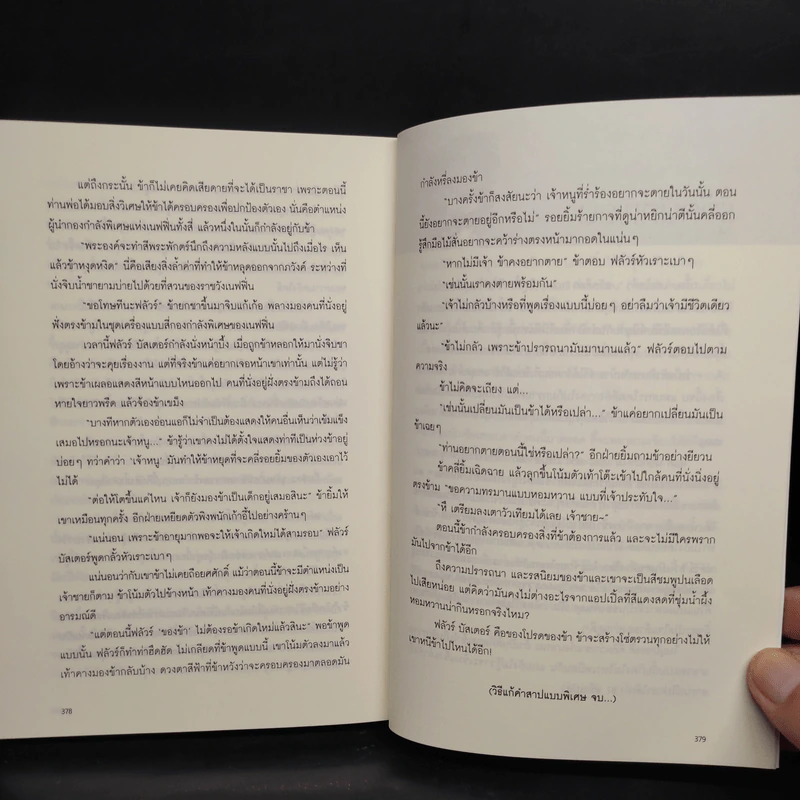 แต่ถึงกระนั้น ข้าก็ไม่เคยคิดเสียดายที่จะได้เป็นราชา เพราะตอนนี้
ท่านพ่อได้มอบสิ่งวิเศษให้ข้าได้ครอบครองเพื่อปกป้องตัวเอง นั่นคือตำแหน่ง
ผู้นำกองกำลังพิเศษแห่งเนฟฟินทั้งสี่ แล้วหนึ่งในนั้นก็กำลังอยู่กับข้า
"พระองค์จะทำสีพระพักตร์นึกถึงความหลังแบบนั้นไปถึงเมื่อไร เห็น
แล้วข้าหงุดหงิด" นี่คือเสียงสิ่งล้ำค่าที่ทำให้ข้าหลุดออกจากภวังค์ ระหว่างที่
นั่งจิบน้ำชายามบ่ายไปด้วยที่สวนของราชวังเนฟฟิน
"ขอโทษทีนะฟลัวร์" ข้ายกชาขึ้นมาจิบแก้เก้อ พลางมองคนที่นั่งอยู่
ฝั่งตรงข้ามในชุดเครื่องแบบสี่กองกำลังพิเศษของเนฟฟิน
เวลานี้ฟลัวร์ บัสเตอร์กำลังนั่งหน้าบึ้ง เมื่อถูกข้าหลอกให้มานั่งจิบชา
โดยอ้างว่าจะคุยเรื่องงาน แต่ที่จริงข้าแค่อยากเจอหน้าเขาเท่านั้น แต่ไม่รู้ว่า
เพราะข้าเผลอแสดงสีหน้าแบบไหนออกไป คนที่นั่งอยู่ฝั่งตรงข้ามถึงได้ถอน
หายใจยาวพรืด แล้วจ้องข้าเขม็ง
"บางทีหากตัวเองอ่อนแอก็ไม่จำเป็นต้องแสดงให้คนอื่นเห็นว่าเข้มแข็ง
เสมอไปหรอกนะเจ้าหนู..." ข้ารู้ว่าเขาคงไม่ได้ตั้งใจแสดงท่าทีเป็นห่วงข้าอยู่
บ่อยๆ ทว่าคำว่า 'เจ้าหนู' มันทำให้ข้าหยุดที่จะคลี่รอยยิ้มของตัวเองเอาไว้
ไม่ได้
"ต่อให้โตขึ้นแค่ไหน เจ้าก็ยังมองข้าเป็นเด็กอยู่เสมอสินะ" ข้ายิ้มให้
เขาเหมือนทุกครั้ง อีกฝ่ายเหยียดตัวพิงพนักเก้าอี้ไปอย่างคร้านๆ
"แน่นอน เพราะข้าอายุมากพอจะให้เจ้าเกิดใหม่ได้สามรอบ" ฟลัวร์
บัสเตอร์พูดกลั้วหัวเราะเบาๆ
แน่นอนว่ากับเขาข้าไม่เคยถือยศศักดิ์ แม้ว่าตอนนี้ข้าจะมีตำแหน่งเป็น
เจ้าชายก็ตาม ข้าโน้มตัวไปข้างหน้า เท้าคางมองคนที่นั่งอยู่ฝั่งตรงข้ามอย่าง
อารมณ์ดี
"แต่ตอนนี้ฟลัวร์ 'ของข้า' ไม่ต้องรอข้าเกิดใหม่แล้วสินะ" พอข้าพูด
แบบนั้น ฟลัวร์ก็ทำท่าฮึดฮัด ไม่เกลียดที่ข้าพูดแบบนี้ เขาโน้มตัวลงมาแล้ว
เท้าคางมองข้ากลับบ้าง ดวงตาสีฟ้าที่ข้าหวังว่าจะครอบครองมาตลอดมัน
378
กำลังหรี่ลงมองข้า
"บางครั้งข้าก็สงสัยนะว่า เจ้าหนูที่ร่ำร้องอยากจะตายในวันนั้น ตอน
นี้ยังอยากจะตายอยู่อีกหรือไม่" รอยยิ้มร้ายกาจที่ดูน่าหยิกน่าตีนั้นคลี่ออก
รู้สึกมือไม้สั่นอยากจะคว้าร่างตรงหน้ามากอดในแน่นๆ
"หากไม่มีเจ้า ข้าคงอยากตาย" ข้าตอบ ฟลัวร์หัวเราะเบาๆ
"เช่นนั้นเราคงตายพร้อมกัน"
"เจ้าไม่กลัวบ้างหรือที่พูดเรื่องแบบนี้บ่อยๆ อย่าลืมว่าเจ้ามีชีวิตเดียว
แล้วนะ"
"ข้าไม่กลัว เพราะข้าปรารถนามันมานานแล้ว" ฟลัวร์ตอบไปตาม
ความจริง
ข้าไม่คิดจะเถียง แต่...
"เช่นนั้นเปลี่ยนมันเป็นข้าได้หรือเปล่า..." ข้าแค่อยากเปลี่ยนมันเป็น
ข้าเฉยๆ
"ท่านอยากตายตอนนี้ใช่หรือเปล่า?" อีกฝ่ายยิ้มถามข้าอย่างยียวน
ข้าคลี่ยิ้มเฉิดฉาย แล้วลุกขึ้นโน้มตัวเท้าโต๊ะเข้าไปใกล้คนที่นั่งนิ่งอยู่
ตรงข้าม "ขอความทรมานแบบหอมหวาน แบบที่เจ้าประทับใจ..."
"หึ เตรียมลงเตาวัวเทียมได้เลย เจ้าชาย~"
ตอนนี้ข้ากำลังครอบครองสิ่งที่ข้าต้องการแล้ว และจะไม่มีใครพราก
มันไปจากข้าได้อีก
ถึงความปรารถนา และรสนิยมของข้าและเขาจะเป็นสีชมพูปนเลือด
ไปเสียหน่อย แต่คิดว่ามันคงไม่ต่างอะไรจากแอปเปิ้ลที่สีแดงสดที่ชุ่มน้ำผึ้ง
หอมหวานน่ากินหรอกจริงไหม?
ฟลัวร์ บัสเตอร์ คือของโปรดของข้า ข้าจะสร้างโซ่ตรวนทุกอย่างไม่ให้
เขาหนีข้าไปไหนได้อีก!
(วิธีแก้คำสาปแบบพิเศษ จบ...)
379